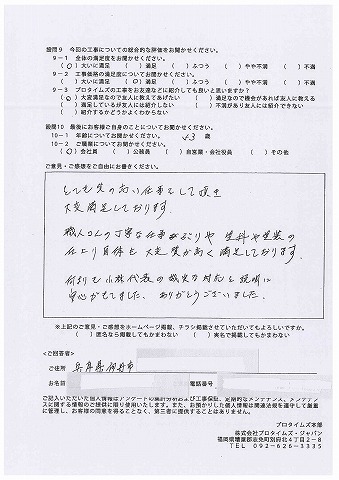 設問9 今回の工事についての総合的な評価をお聞かせください。
9-1 全体の満足度をお聞かせください。
(○)大いに満足 ( )満足 ( )ふつう ( )やや不満 ( )不満
9-2 工事価格の満足度についてお聞かせください。
( )大いに満足 (○)満足 ( )ふつう ( )やや不満 ( )不満
9-3 プロタイムズの工事をお友達などに紹介しても良いと思いますか?
(○)大変満足なので友人に教えてあげたい ( )満足なので機会があれば友人に教える
( )満足しているが友人には紹介しない ( )不満があるので友人に紹介しない
( )紹介するかどうかよくわからない
設問10 最後にお客様ご自身のことについてお聞かせください。
10-1 年齢についてお聞かせください。 43 歳
10-2 ご職業についてお聞かせください。
(○)会社員 ( )公務員 ( )自営業・会社役員 ( )その他
ご意見・ご感想をご自由にお書きください。
とても質の高い仕事をして頂き
大変満足しております。
職人さんの丁寧な仕事ぶりや 塗料や塗装の
仕上り自体も大変質が高く満足しております。
何よりも小林代表の誠実な対応と説明に
安心がもてました。ありがとうございました。
※上記のご意見・ご感想をホームページ掲載、チラシ掲載させていただいてもよろしいですか。
( )匿名なら掲載してもかまわない ( )実名で掲載してもかまわない
<ご回答者>
ご住所 兵庫県伊丹市
お名前 電話番号
ご記入いただいた個人情報はアンケートの集計分析および工事保証、定期的なメンテナンス、
スに関する情報のご提供に限り使用いたします。また、お預かりした個人情報は関連法規を遵守して厳重
に管理し、お客様の同意を得ることなく、第三者に提供することはありません。
プロタイムズ本部
株式会社プロタイムズ・ジャパン
福岡県糟屋郡志免町別府北4丁目2-8
TEL 092-626-3335